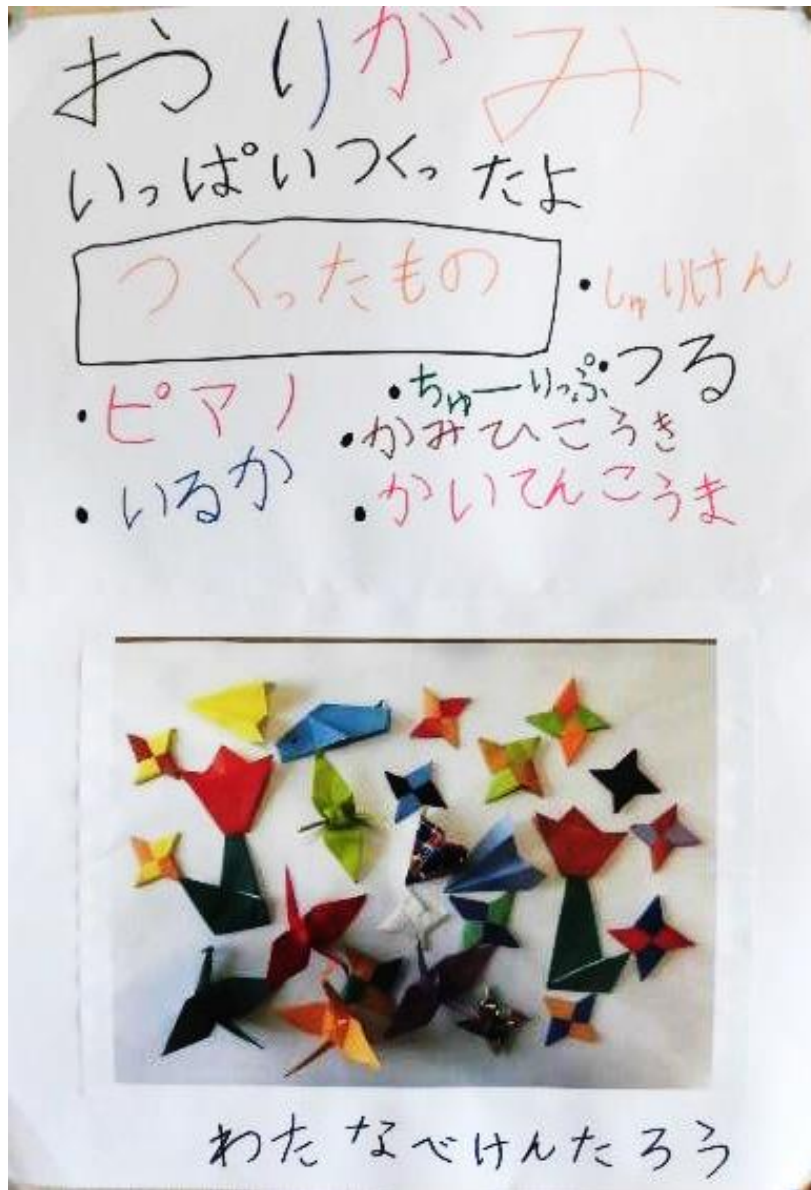 おりがみ
いっぱいつくったよ
つくったもの
・しゅりけん
・ピアノ
・ちゅーりっぷ
・つる
・かみひこうき
・いるか
・かいてんこうま
わたなべけんたろう